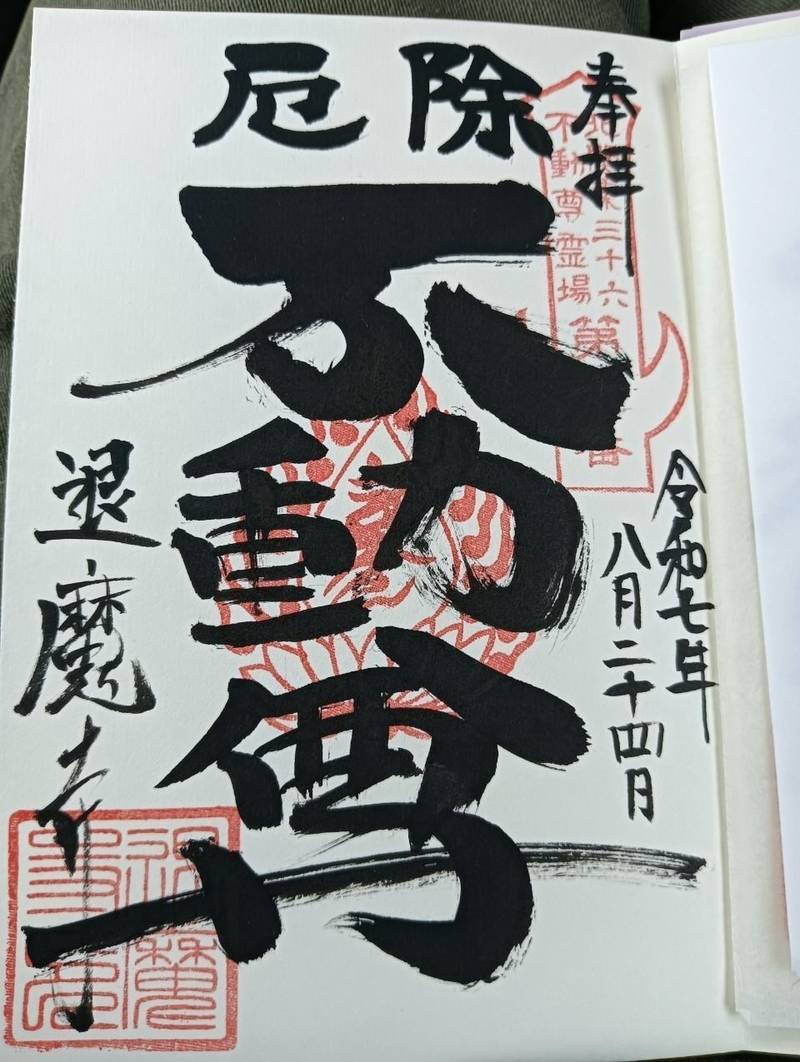 奉拝
三十六
不動尊霊場
第 番
令和七年
八月二十四日
厄除
不動尊
退魔寺